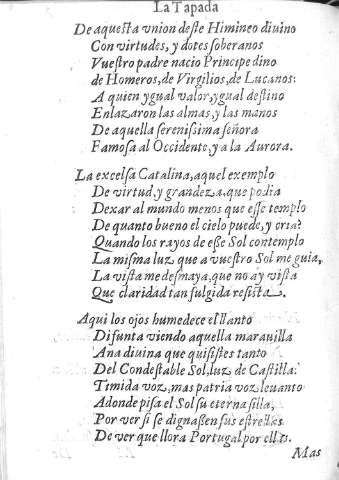 La Tapada
De aquesta vnion deste Himineo diuino
Con virtudes, y dotes soberanos
Vuestro padre nacio Principe dino
de Homeros, de Virgilios, de Lucanos:
A quien ygual valor, ygual destino
Enlazaron las almas, y las manos
De aquella serenissima señora
Famosa al Occidente, y a la Aurora.
La excelsa Catalina, aquel exemplo
De virtud, y grandeza, que podia
Dexar al mundo menos que esse templo
De quanto bueno el cielo puede, y cria?
Quando los rayos de esse Sol contemplo
La misma luz que a vuestro Sol me guia,
La vista me desmaya, que no ay vista
Que claridad tan fulgida resista.
Aqui los ojos humedece el llanto
Difunta viendo aquella marauilla
Ana diuina que quisistes tanto
Del Condestable Sol, luz de Castilla:
Timida voz, mas patria voz leuanto
Adonde pisa el Sol su eterna silla,
Por ver si se dignassen sus estrellas
De ver que llora Portugal por ellas.
Mas